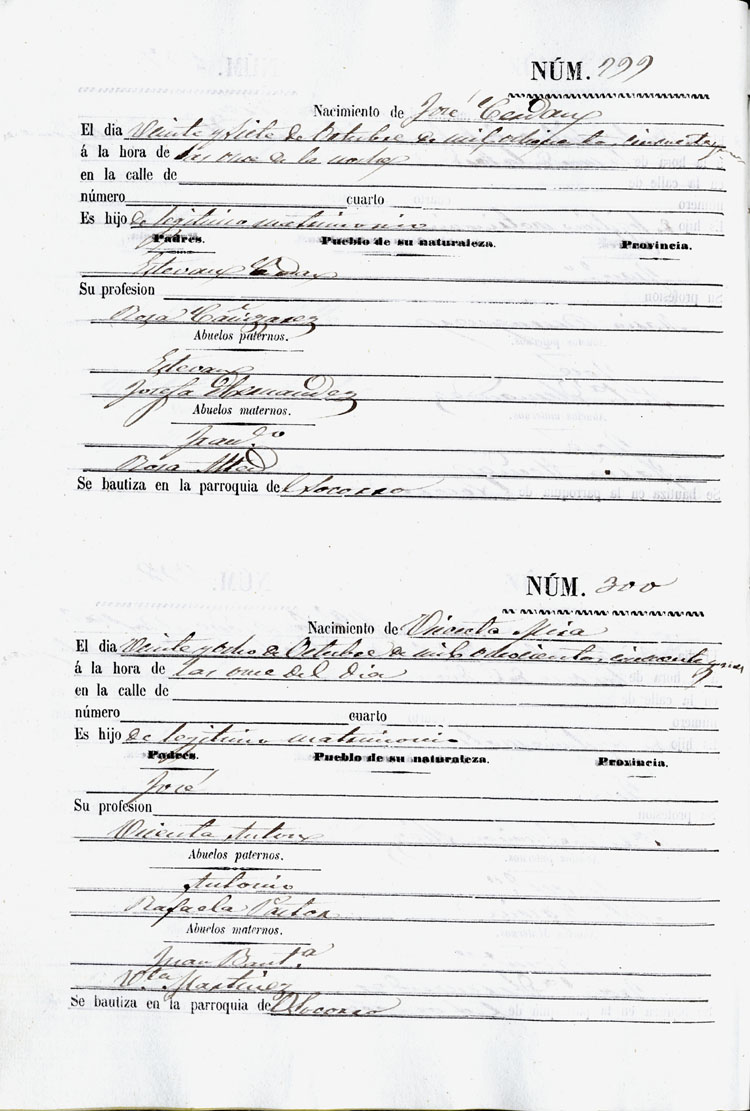 NÚM. 299
Nacimiento de José Cerdan
El dia Veinte y siete de Octubre de mil ochocientos cincuenta y
á la hora de las once de la noche
en la calle de
número cuarto
Es hijo de legitimo matrimonio
Padres. Pueblo de su naturaleza. Provincia.
Estevan Cerdan
Su profesion
Rosa Cañizares
Abuelos paternos.
Estevan
Josefa Hernandez
Abuelos maternos.
Fran.co
Rosa
Se bautiza en la parroquia del Socorro
NÚM. 300
Nacimiento de Vicenta Mira
El dia Veinte y ocho de Octubre de mil ochocientos cincuenta y
á la hora de las once del dia
en la calle de
número cuarto
Es hijo de legitimo matrimonio
Padres. Pueblo de su naturaleza. Provincia.
José
Su profesion
Vicenta Anton
Abuelos paternos.
Antonio
Rafaela Pastor
Abuelos maternos.
Juan Baut.a
V.ta Martinez
Se bautiza en la parroquia del Socorro